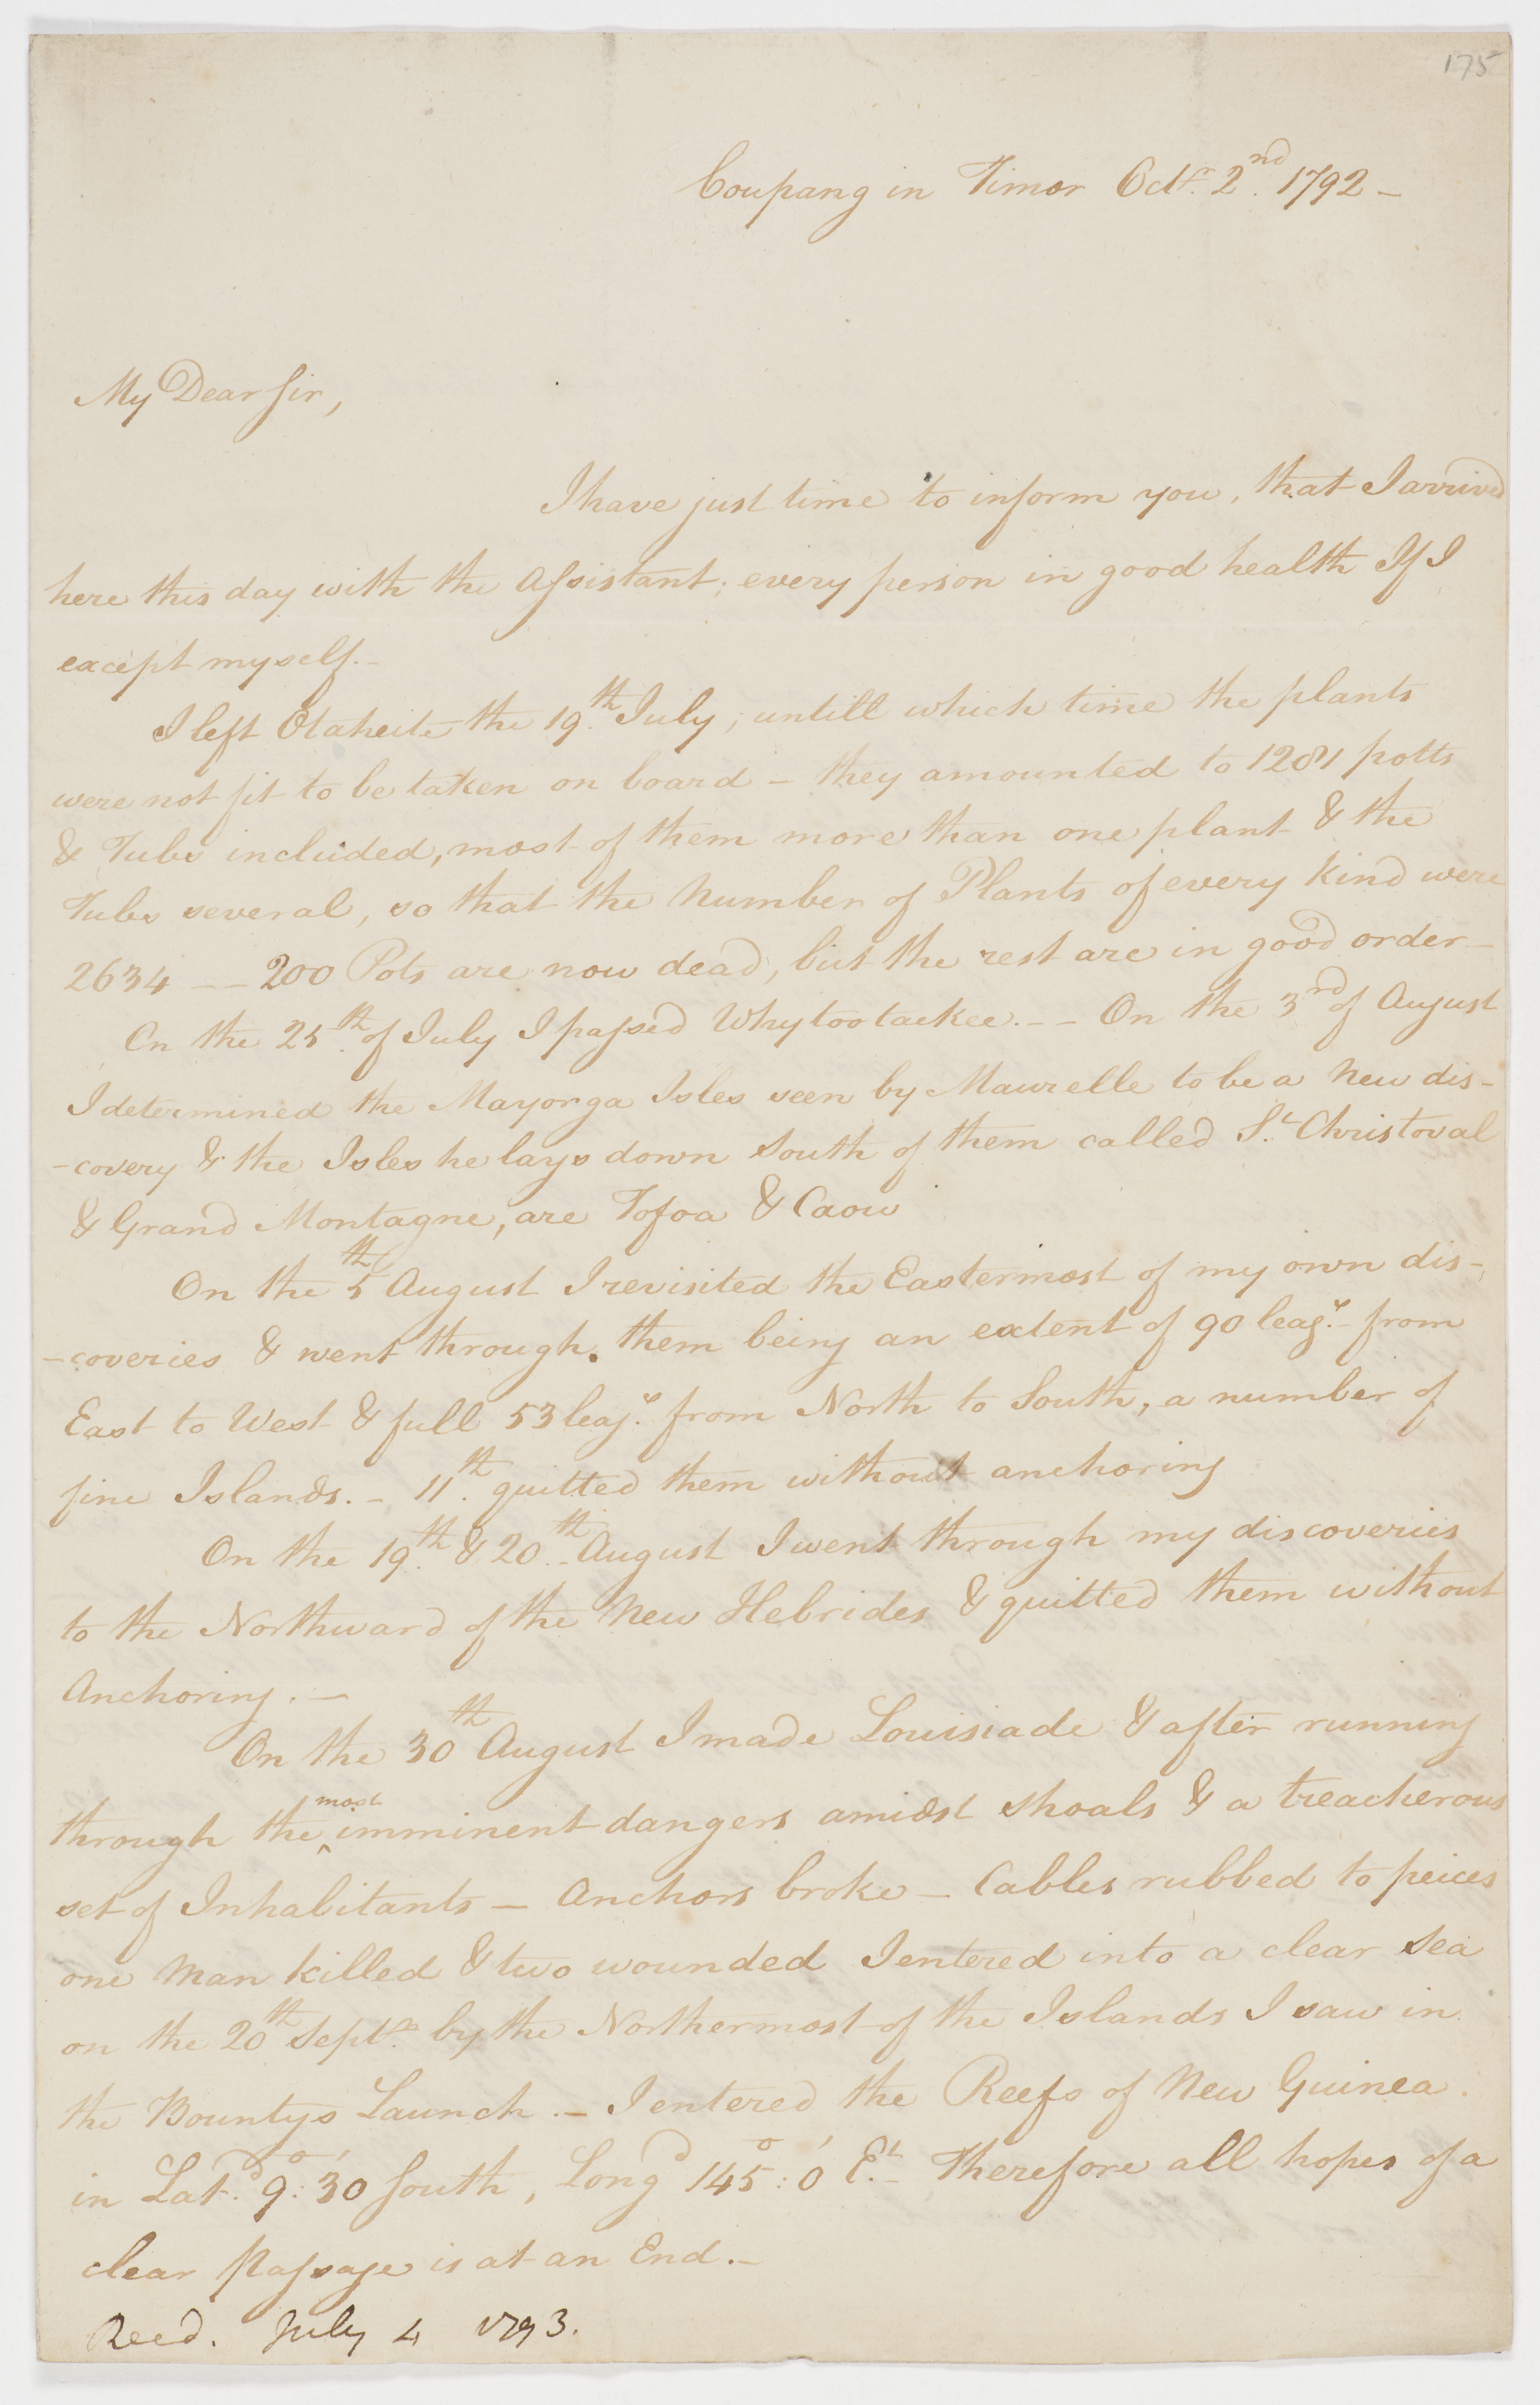 175
Coupang in Timor Octr. 2nd. 1792 –
My Dear Sir,
I have just time to inform you, that I arrived
here this day with the Assistant; every person in good health If I
except myself. –
I left Otaheite the 19th. July, untill which time the plants
were not fit to be taken on board – they amounted to 1281 potts
& Tubs included, most of them more than one plant & the
Tubs several, so that the Number of Plants of every Kind were
2634 –– 200 Pots are now dead, but the rest are in good order –
On the 25th. of July I passed Whytootackee. –– On the 3rd of August
I determined the Mayorga Isles seen by Maurelle to be a New dis-
-covery & the Isles he lays down South of them called St. Christoval
& Grand Montagne, are Tofoa & Caow
On the 5th August I revisited the Eastermost of my own dis-
-coveries & went through them being an extent of 90 leags. from
East to West & full 53 leags. from North to South, a number of
fine Islands. – 11th. quitted them without anchoring
On the 19th. & 20th. August I went through my discoveries
to the Northward of the New Hebrides & quitted them without
Anchoring. –
On the 30th August I made Louisiade & after running
through the most imminent dangers amidst shoals & a treacherous
set of Inhabitants – Anchors broke – Cables rubbed to peices
one Man killed & two wounded I entered into a clear Sea
on the 20th Septr. by the Northermost of the Islands I saw in
the Bountys Launch. – I entered the Reefs of New Guinea
in Latd. 9°: 30' South, Longd 145°: 0' Et. – Therefore all hopes of a
clear Passage is at an End. –
Reed. July 4 1793.